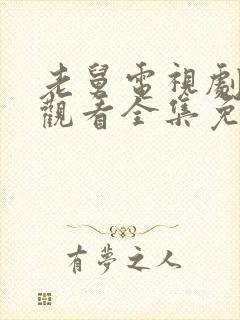 老舅電視劇
觀看全集免
有夢之人